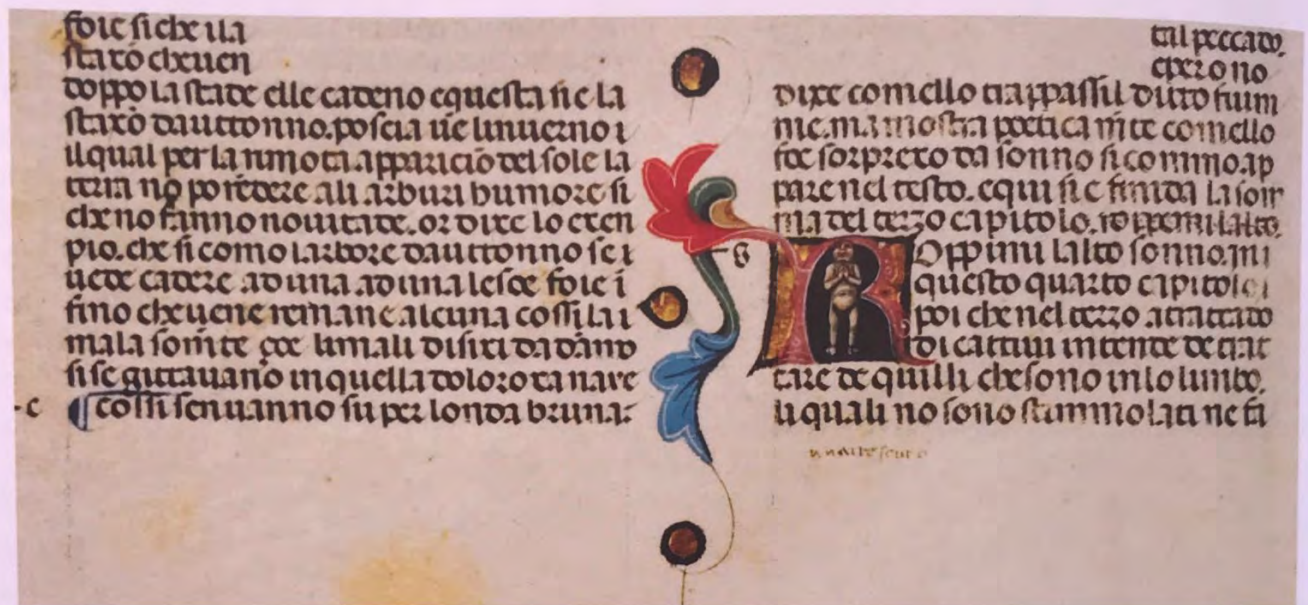 foie si che ila
staxõ cheuen
doppo la state elle cadeno equesta si e la
staxõ dauttonno. poscia uẽ linuerno i
ilqual per la rimota appariciõ del sole la
terra nõ po rẽdere ali arburi humore si
che no fanno nouitade. or dixe lo exen
pio. che si como larbore dauttonno se i
uede cadere aduna aduna le soe foie i
fino cheuene remane alcuna cossi la i
mala somẽte çoe li mali disiri da dãno
si se gittauano in quella doloroxa naue
-c ¶ cossi senuanno su per londa bruna:
tal peccado.
e pero no
dixe comello trappassi il ditto fium
me. ma mostra poetica mẽte comello
foe sorprexo da sonno si commo ap
pare nel testo. equi si e finida la som
ma del terzo capitolo. roppemi lalto.
R Oppimi lalto sonno. ini
questo quarto capitolo i
poi che nel terzo a trattado
di cattiui intende de trat
tare de quilli che sono in lo limbo.
li quali no sono stimmolati ne fi